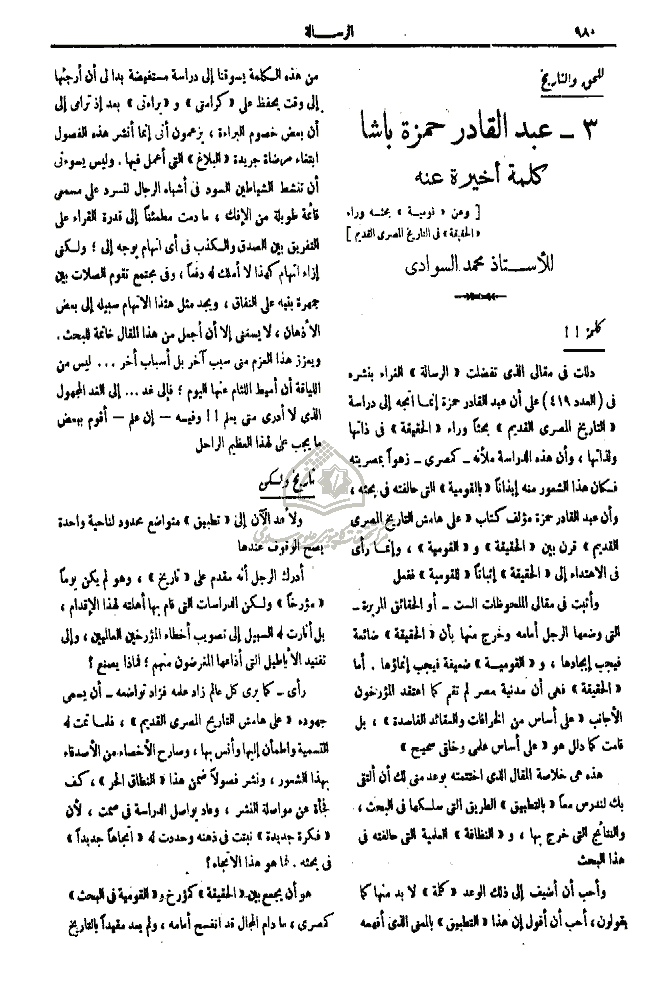 ٩٨٠
الرســالة
للحق والتاريخ
٣ - عبد القادر حمزة باشا
كلمة أخيرة عنه
[ وعن « قومية » بحثه وراء
« الحقيقة » فى التاريخ المصرى القديم ]
للأســتاذ محمد السوادى
كلمة !!
دللت فى مقالى الذى تفضلت « الرسالة » الغراء بنشره
فى ( العدد ٤١٩ ) على أن عبد القادر حمزة إنما اتجه إلى دراسة
« التاريخ المصرى القديم » بحثاً وراء « الحقيقة » فى ذاتها
ولذاتها ، وأن هذه الدراسة ملأته ـ كمصرى ـ زهواً بمصريته
فكان هذا الشعور منه إيذاناً « بالقومية » التى حالفته فى بحثه ،
وأن عبد القادر حمزة مؤلف كتاب « على هامش التاريخ المصرى
القديم » قرن بين « الحقيقة » و « القومية » ، وإنما رأى
فى الاهتداء إلى « الحقيقة » إثباتاً « للقومية » ففعل
وأثبت فى مقالى الملحوظات الست ـ أو الحقائق المريرة ـ
التى وضعها الرجل أمامه وخرج منها بأن « الحقيقة » ضائعة
فيجب إيجادها ، و « القومية » ضعيفة فيجب إنماؤها . أما
« الحقيقة » فهى أن مدنية مصر لم تقم كما اعتقد المؤرخون
الأجانب « على أساس من الخرافات والعقائد الفاسدة » ، بل
قامت كما دلل هو « على أساس علمى وخلقى صحيح »
هذه هى خلاصة المقال الذى اختتمته بوعد منى لك أن ألتقى
بك لندرس معاً « بالتطبيق » الطريق التى سلكها فى البحث ،
والنتائج التى خرج بها ، و « النظافة » العلمية التى حالفته فى
هذا البحث
وأحب أن أضيف إلى ذلك الوعد « كلمة » لا بد منها كما
يقولون ، أحب أن أقول إن هذا « التطبيق » بالمعنى الذى أفهمه
من هذه الكلمة يسوقنا إلى دراسة مستفيضة بدا لى أن أرجئها
إلى وقت يحفظ على « كرامتى » و « براءتى » بعد إذ ترامى إلى
أن بعض خصوم البراءة ، يزعمون أنى إنما أنشر هذه الفصول
ابتغاء مرضاة جريدة « البلاغ » التى أعمل فيها . وليس يسوءنى
أن تنشط الشياطين السود فى أشباه الرجال لتسرد على مسمعى
قائمة طويلة من الإفك ، ما دمت مطمئناً إلى قدرة القراء على
التفريق بين الصدق والكذب فى أى اتهام يوجه إلى ؛ ولكنى
إزاء اتهام كهذا لا أملك له دفعاً ، وفى مجتمع تقوم الصلات بين
جمهرة بنيه على النفاق ، ويجد مثل هذا الاتهام سبيله إلى بعض
الأذهان ، لا يسعنى إلا أن أجعل من هذا المقال خاتمة للبحث .
ويعزز هذا العزم منى سبب آخر بل أسباب أخر ... ليس من
اللياقة أن أميط اللثام عنها اليوم ؛ فإلى غد ... إلى الغد المجهول
الذى لا أدرى متى يعلم !! وفيه ـ إن علم ـ أقوم ببعض
ما يجب على لهذا العظيم الراحل
تاريخ ولكن
ولأعد الآن إلى « تطبيق » متواضع محدود لناحية واحدة
يصح الوقوف عندها
أدرك الرجل أنه مقدم على « تاريخ » ، وهو لم يكن يوماً
« مؤرخاً » ولكن الدراسات التى قام بها أهلته لهذا الإقدام ،
بل أنارت له السبيل إلى تصويب أخطاء المؤرخين العالميين ، وإلى
تفنيد الأباطيل التى أذاعها المغرضون منهم ؛ فماذا يصنع ؟
رأى ـ كما يرى كل عالم زاد علمه فزاد تواضعه ـ أن يسمى
جهوده « على هامش التاريخ المصرى القديم » ، فلما تمت له
التسمية واطمأن إليها وأنس بها ، وصارح الأخصاء من الأصدقاء
بهذا الشعور ، ونشر فصولاً ضمن هذا « النطاق الحر » ، كف
فجأة عن مواصلة النشر ، وعاد يواصل الدراسة فى صمت ، لأن
« فكرة جديدة » نبتت فى ذهنه وحددت له « اتجاهاً جديداً »
فى بحثه . فما هو هذا الاتجاه ؟
هو أن يجمع بين « الحقيقة » كمؤرخ و « القومية فى البحث »
كمصرى ، ما دام المجال قد انفسح أمامه ، ولم يعد مقيداً بالتاريخ